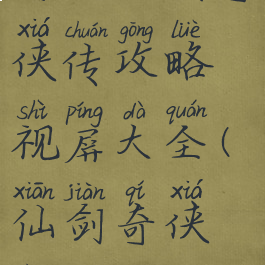 xiá chuán gōng lüè
侠传攻略
shì píng dà quán
视屏大全(
xiān jiàn qí xiá
仙剑奇侠